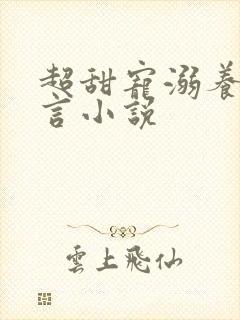 超甜寵溺養
言小説
雲上飛仙